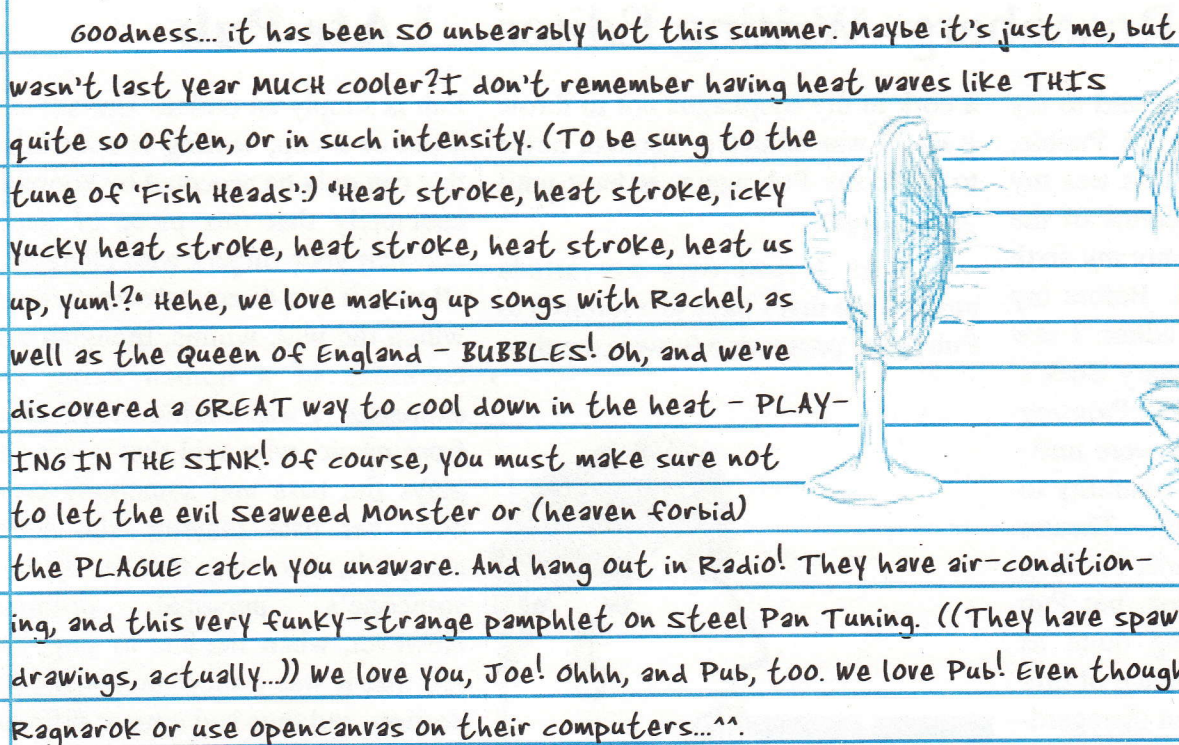 Goodness... it has been SO unbearably hot this summer. Maybe it's just me, but
wasn't last year MUCH cooler?I don't remember having heat waves like THIS
quite so often, or in such intensity. (To be sung to the
tune of 'Fish Heads':) "Heat stroke, heat stroke, icky
yucky heat stroke, heat stroke, heat stroke, heat us
up, yum!?" Hehe, we love making up songs with Rachel, as
well as the Queen of England - BUBBLES! Oh, and we've
discovered a GREAT way to cool down in the heat - PLAY-
ING IN THE SINK! Of course, you must make sure not
to let the evil Seaweed Monster or (heaven forbid)
the PLAGUE catch you unaware. And hang out in Radio! They have air-condition-
ing, and this very funky-strange pamphlet on Steel Pan Tuning. ((They have spaw
drawings, actually...)) We love you, Joe! Ohhh, and Pub, too. We love Pub! Even though
Ragnarok or use opencanvas on their computers...^^.